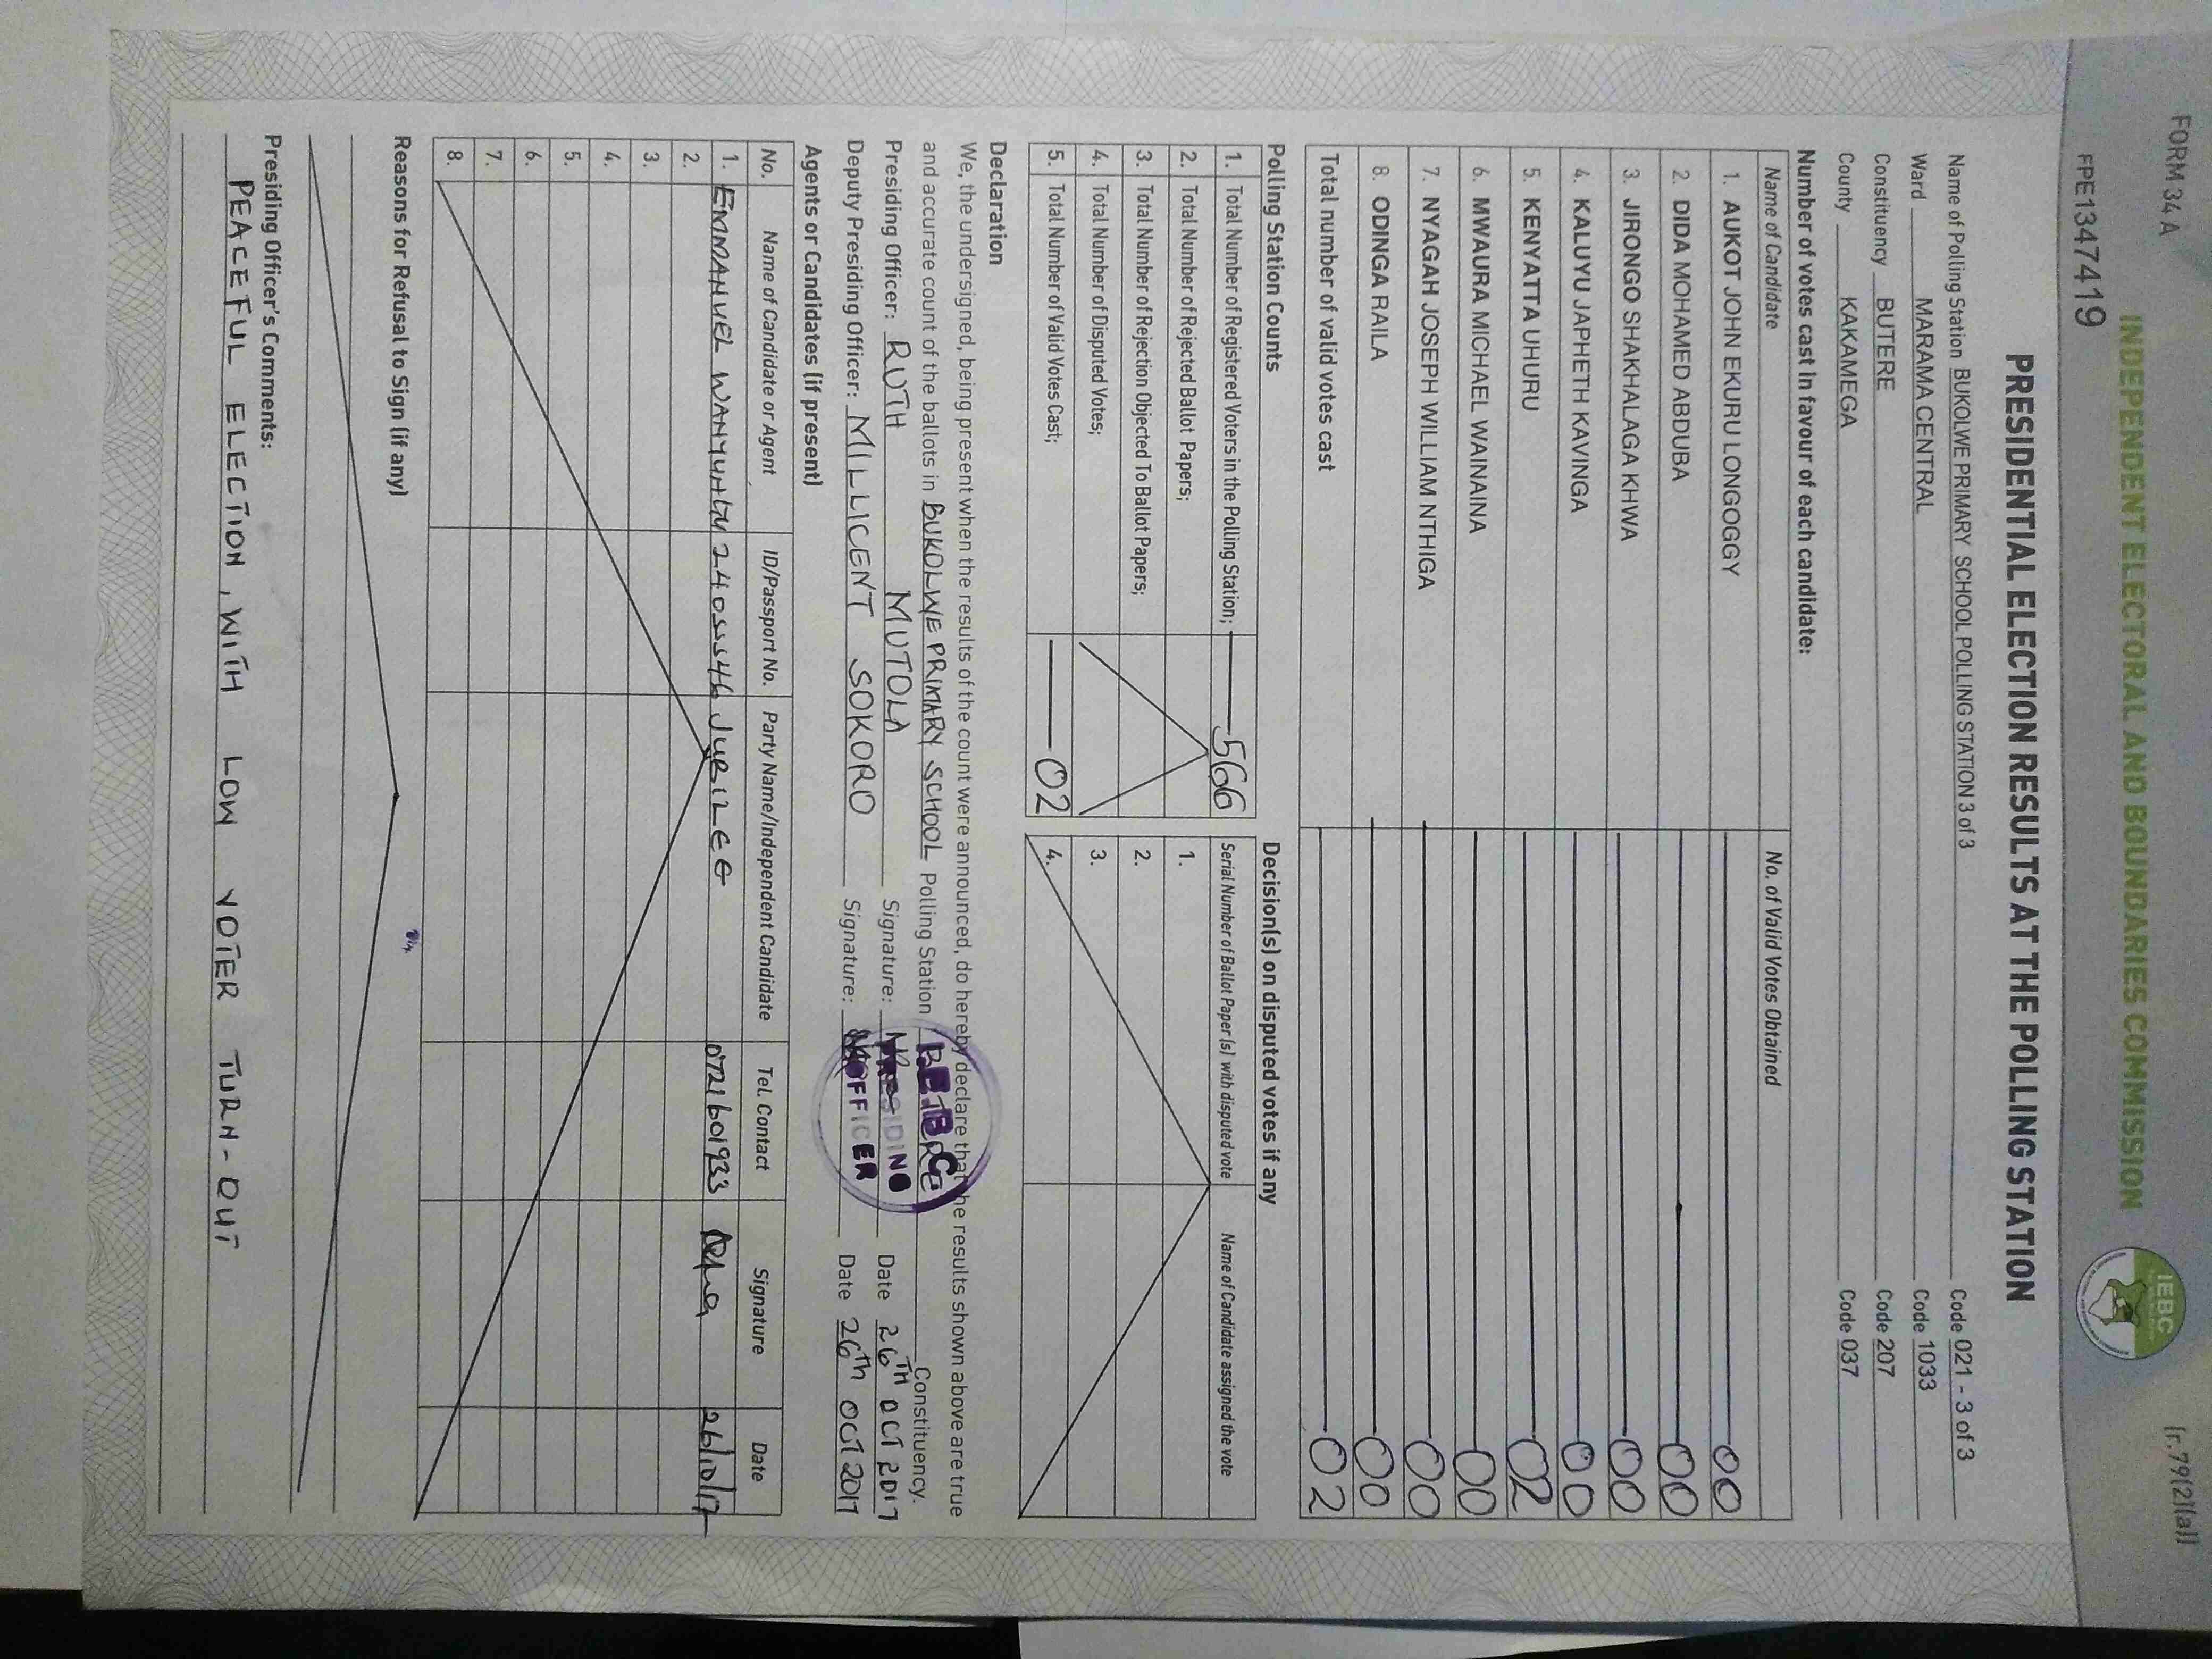 FORM 34 A
(r.79(2)(a))
INDEPENDENT ELECTORAL AND BOUNDARIES COMMISSION
IEBC
FPE1347419
PRESIDENTIAL ELECTION RESULTS AT THE POLLING STATION
Name of Polling Station BUKOLWE PRIMARY SCHOOL POLLING STATION 3 of 3 Code 021 - 3 of 3
Ward MARAMA CENTRAL Code 1033
Constituency BUTERE Code 207
County KAKAMEGA Code 037
Number of votes cast in favour of each candidate:
Name of Candidate No. of Valid Votes Obtained
1. AUKOT JOHN EKURU LONGOGGY 00
2. DIDA MOHAMED ABDUBA 00
3. JIRONGO SHAKHALAGA KHWA 00
4. KALUYU JAPHETH KAVINGA 00
5. KENYATTA UHURU 02
6. MWAURA MICHAEL WAINAINA 00
7. NYAGAH JOSEPH WILLIAM NTHIGA 00
8. ODINGA RAILA 00
Total number of valid votes cast 02
Polling Station Counts
1. Total Number of Registered Voters in the Polling Station; 566
2. Total Number of Rejected Ballot Papers;
3. Total Number of Rejection Objected To Ballot Papers;
4. Total Number of Disputed Votes;
5. Total Number of Valid Votes Cast; 02
Decision(s) on disputed votes if any
Serial Number of Ballot Paper (s) with disputed vote Name of Candidate assigned the vote
1.
2.
3.
4.
Declaration
We, the undersigned, being present when the results of the count were announced, do hereby declare that the results shown above are true
and accurate count of the ballots in BUKOLWE PRIMARY SCHOOL Polling Station Constituency.
Presiding Officer: RUTH MUTOLA Signature: Date 26TH OCT 2017
Deputy Presiding Officer: MILLICENT SOKORO Signature: Date 26th OCT 2017
OFFICER
Agents or Candidates (if present)
No. Name of Candidate or Agent ID/Passport No. Party Name/Independent Candidate Tel. Contact Signature Date
1. EMMANUEL 0721601933 26/10/17
2.
3.
4.
5.
6.
7.
8.
Reasons for Refusal to Sign (if any)
Presiding Officer's Comments:
PEACEFUL ELECTION, WITH LOW VOTER TURN-OUT